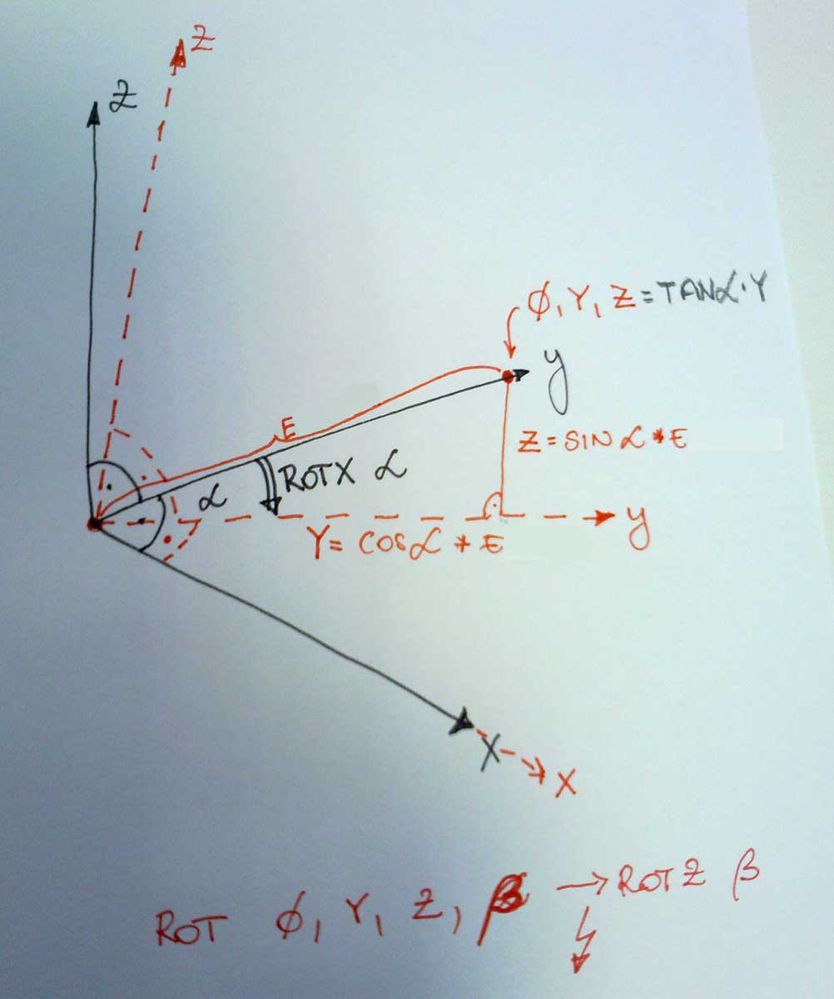 Z
Z
Φ, Y, Z = TANα·Y
y
E
Z = SIN α * E
ROTX α
α
y
Y = COSα * E
X
X
ROT Φ, Y, Z, β → ROTZ β